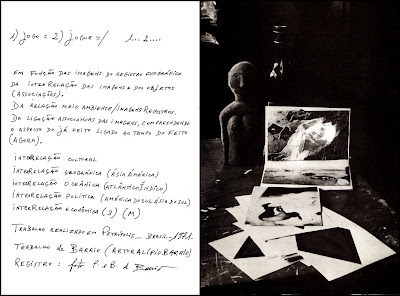 1) JOGO = 2) JOGUE = / 1... 2....
EM FUNÇÃO DAS IMAGENS DO REGISTRO FOTOGRÁFICO
DA INTERRELAÇÃO DAS IMAGENS E DOS OBJETOS
(ASSOCIAÇÕES).
DA RELAÇÃO MEIO AMBIENTE/IMAGENS REGISTROS.
DA LIGAÇÃO ASSOCIATIVAS DAS IMAGENS, COMPREENDENDO
O ASPECTO DO JÁ FEITO LIGADO AO TEMPO DO FEITO
(AGORA).
INTERRELAÇÃO CULTURAL
INTERRELAÇÃO GEOGRÁFICA (ÁSIA AMÉRICA)
INTERRELAÇÃO OCEÂNICA (ATLÂNTICO ÍNDICO)
INTERRELAÇÃO POLÍTICA (AMÉRICA DO SUL ÁSIA DO SUL)
INTERRELAÇÃO ECONÔMICA (3) (M)
TRABALHO REALIZADO EM PETRÓPOLIS _ BRASIL _ 1971
TRABALHO de BARRIO (ARTUR ALÍPIO BARRIO)
REGISTRO : foto P. e B. de Barrio